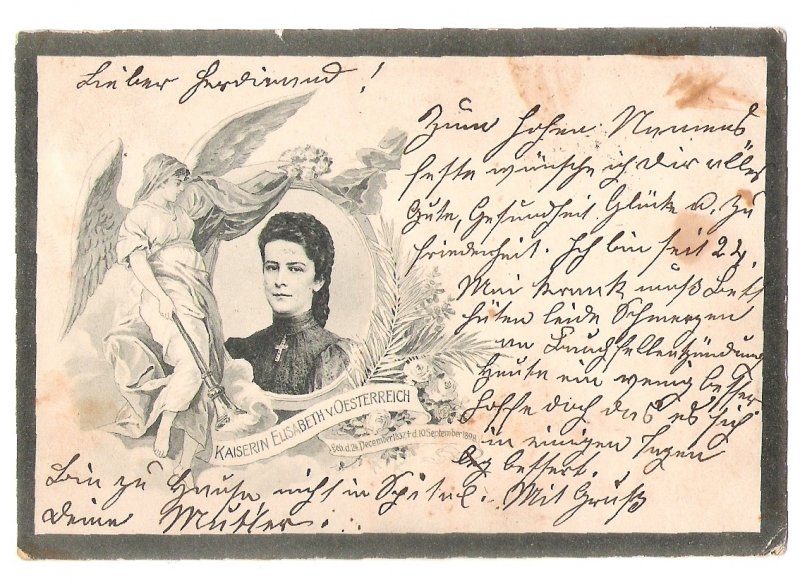 Lieber Ferdinand!
Zum hohen Namens
feste wünsche ich Dir alles
Gute, Gesundheit Glück u. Zu
friedenheit. Ich bin seit 24.
Mai krank muß Bett
hüten leide Schmerzen
an Bauchfellentzündung
Heute ein wenig besser
hoffe doch das es sich
in einigen Tagen
bessert.
Bin zu Hause nicht in Spital. Mit Gruß
Deine Mutter.
KAISERIN ELISABETH V. OESTERREICH
Geb. d. 24 December 1837 † d. 10 September 1898